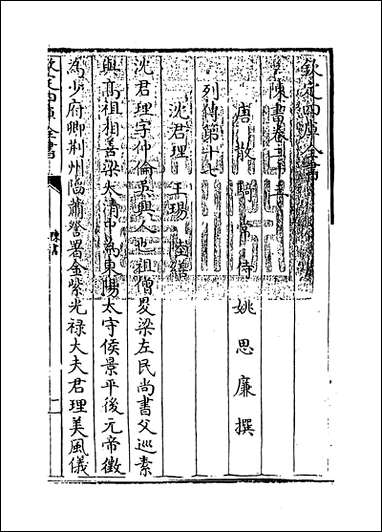 欽定四庫全書
陳書卷二十三
唐散騎常侍姚思廉撰
列傳第十七
沈君理 王瑒 陸繕
沈君理字仲倫吳興人也祖僧畟梁左民尚書父巡素
與高祖相善梁太清中為東陽太守侯景平後元帝徵
為少府卿荆州陷蕭詧署金紫光祿大夫君理美風儀
欽定四庫全書
陳書